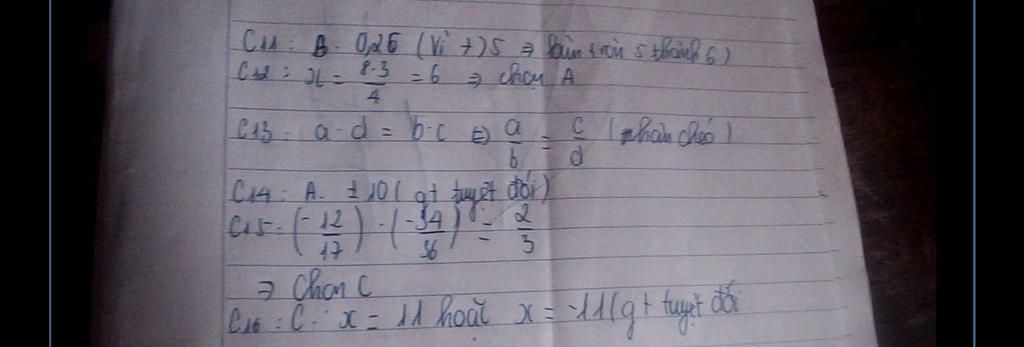 C11: B. 0,26 (Vì 7 > 5 ⇒ làm tròn 5 thành 6)
C12: x = 8·3/4 = 6 ⇒ chọn A
C13: a·d = b·c ⇔ a/b = c/d (nhân chéo)
C14: A. ±10 (gt tuyệt đối)
C15: (-12/17) · (-34/36) = 2/3
⇒ Chọn C
C16: C. x = 11 hoặc x = -11 (gt tuyệt đối